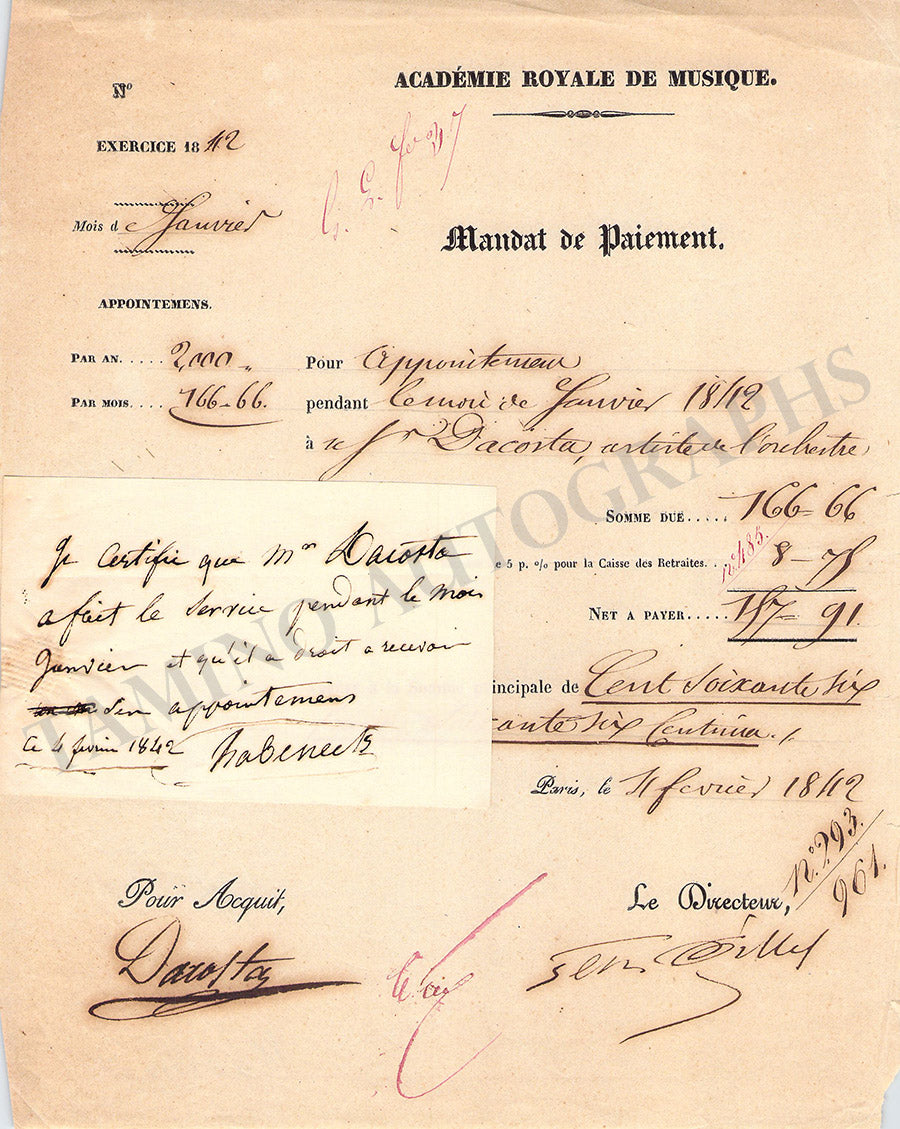 ACADÉMIE ROYALE DE MUSIQUE.
No
EXERCICE 1842
Mois de Janvier
Mandat de Paiement.
APPOINTEMENS.
PAR AN..... 2,000 "
PAR MOIS.... 166-66.
Pour appointemens
pendant le mois de Janvier 1842
à Mr Dacosta, artiste de l'orchestre
SOMME DUE..... 166-66
e 5 p. % pour la Caisse des Retraites.. 8-75
n° 485.
NET A PAYER..... 157-91.
incipale de Cent Soixante six
ante six Centimes./.
Paris, le 4 février 1842
n°. 293.
961.
Je certifie que Mr Dacosta
a fait le service pendant le mois
Janvier et qu'il a droit a recevoir
Ses appointemens
Ce 4 février 1842 Habeneck
Pour Acquit,
Dacosta
Le Directeur,
TAMINO AUTOGRAPHS